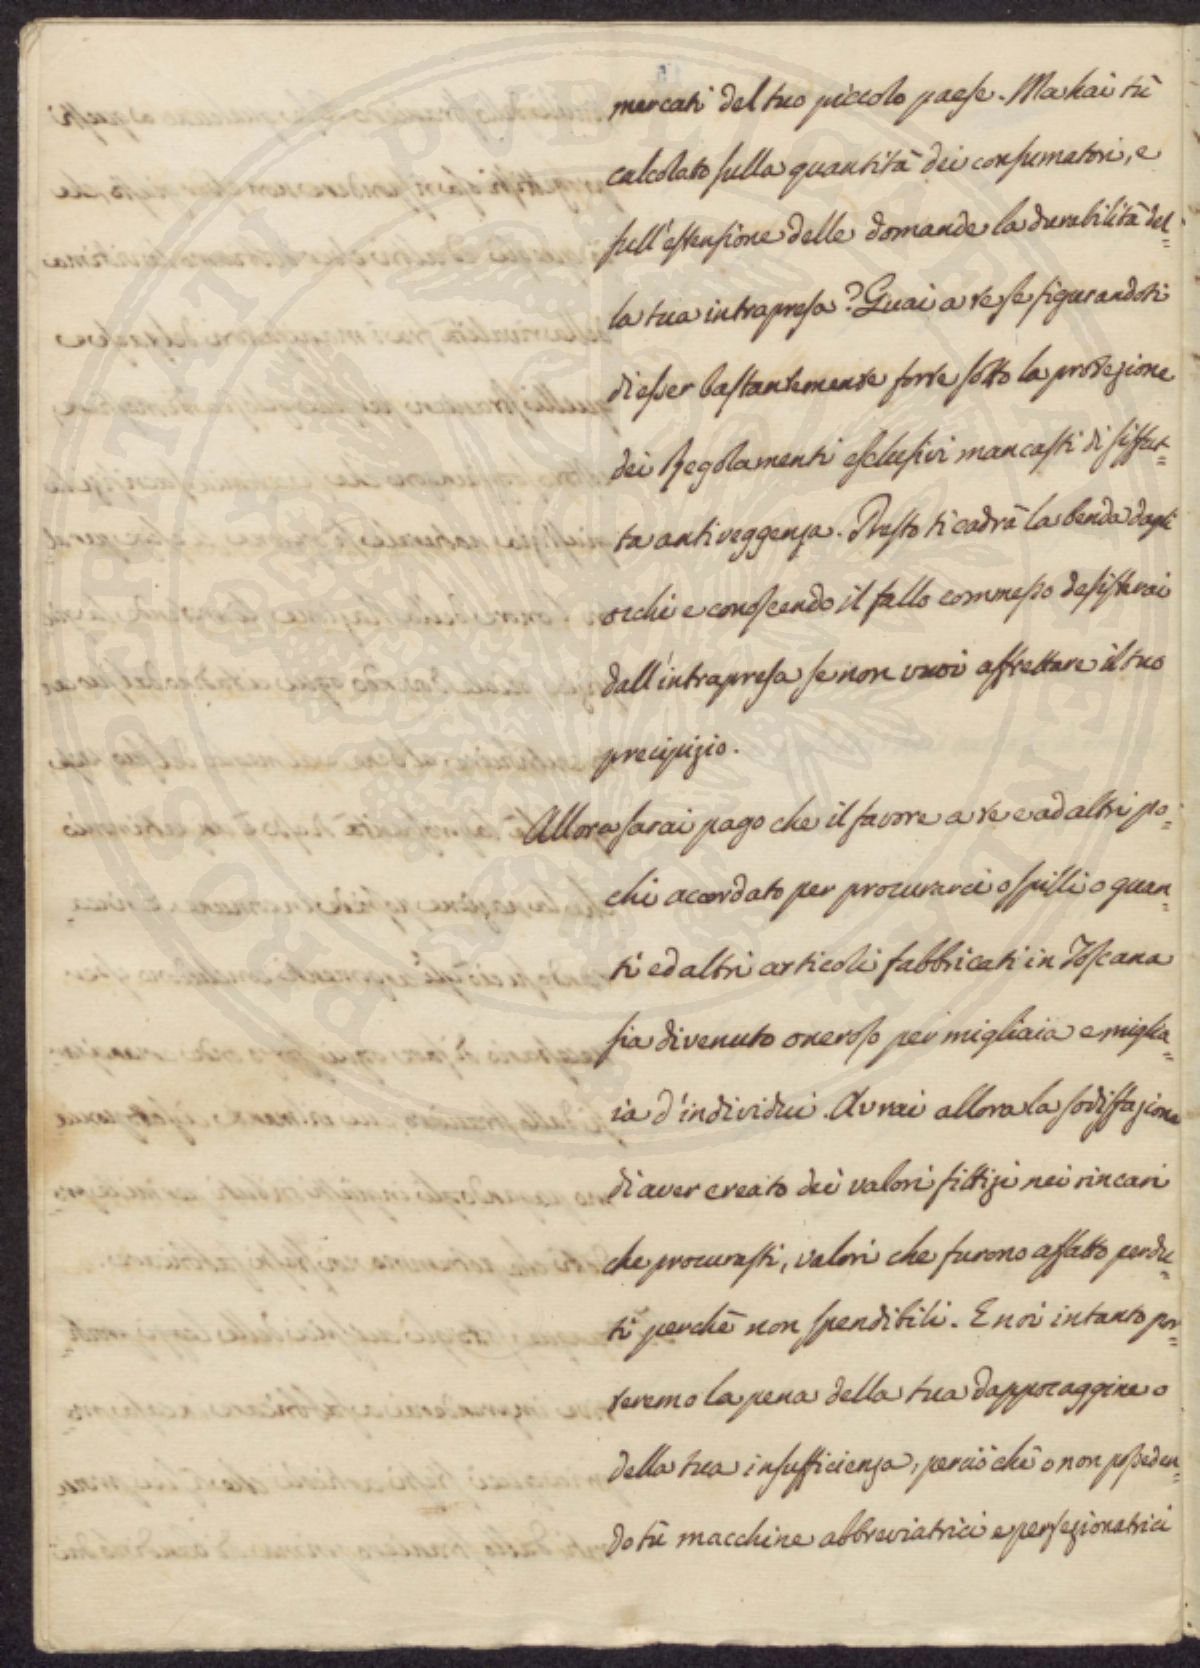 mercati del tuo piccolo paese. Ma hai tù
calcolato sulla quantità dei consumatori, e
sull'estensione delle domande la durabilità del=
la tua intrapresa? Guai a te se figurandoti
di esser bastantemente forte sotto la protezione
dei Regolamenti esclusivi mancasti di siffat=
ta antiveggenza. Presto ti cadrà la benda dagli
occhi e conoscendo il fallo commesso desisterai
dall'intrapresa se non vuoi affrettare il tuo
precipizio.
Allora sarai pago che il favore a te e ad altri po=
chi accordato per procurarci o spilli o guan=
ti ed altri articoli fabbricati in Toscana
sia divenuto oneroso per migliaia e miglia=
ia d'individui. Avrai allora la sodisfazione
di aver creato dei valori fittizi nei rincari
che procurasti, valori che furono affatto perdu=
ti perchè non spendibili. E noi intanto por=
teremo la pena della tua dappocaggine o
della tua insufficienza, perciò chè o non posseden=
do tù macchine abbreviatrici e perfezionatrici
PROSPERITATI PUBLICAE AUGENDAE